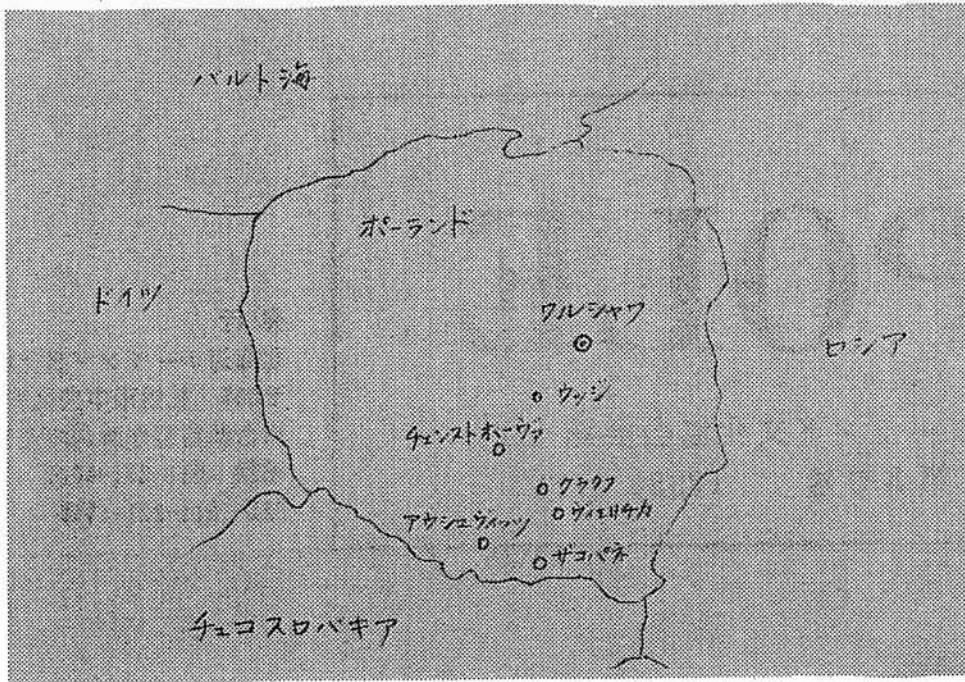 バルト海
ポーランド
ドイツ
ワルシャワ
ロシア
ウッジ
チェンストホーヴァ
クラクフ
ヴィエリチカ
アウシュヴィッツ
ザコパネ
チェコスロバキア